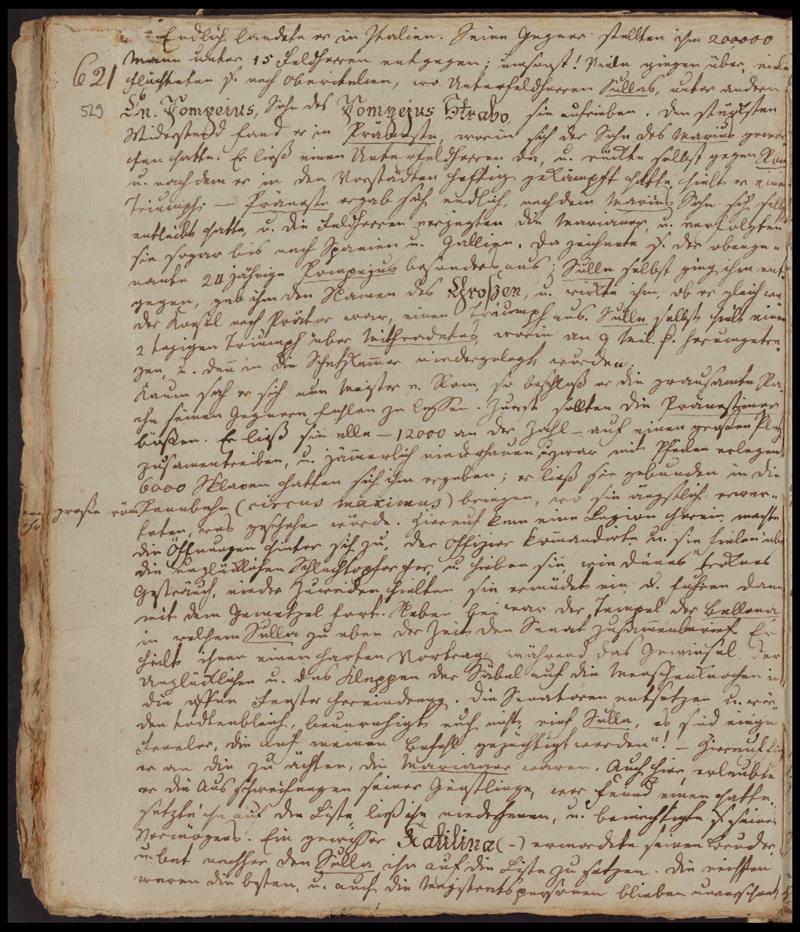 Endlich landete er in Italien. Seine Gegner stellten ihm 200,000
Mann unter 15 Feldherren entgegen; umsonst! Viele giengen über, viele
621
flüchteten s. nach Oberitalien, wo Unterfeldherren Sullas, unter andern
529
Cn. Pompeius, Sohn des Pompejus Strabo, sie aufrieben. Den stärksten
Widerstand fand er in Präneste, worin sich der Sohn des Marius gewor-
fen hatte. Er ließ einen Unterfeldherren da, u. rückte selbst gegen Rom
u. nachdem er in den Vorstädten heftig gekämpft hatte, hielt er einen
Triumph; — Präneste ergab sich endlich, nachdem Marius Sohn sich selbst
entleibt hatte, u. die Feldherren verjagten die Marianer, u. verfolgten
sie sogar bis nach Spanien u. Gallien. Da zeichnete s. der obenge-
nante 24 jährige Pompejus besonders aus; Sulla selbst ging ihm ent-
gegen, gab ihm den Namen des Großen, u. wirkte ihm, ob er gleich we-
der Konsul noch Prätor war, einen Triumph aus. Sulla selbst hielt einen
2 tägigen Triumph über Mithradates worin an 9 Mill. f. herumgetra-
gen, u. dann in die Schatzkammer niedergelegt wurden.
Kaum sah er sich nun Meister v. Rom, so beschloß er die grausamste Ra-
che seinen Gegnern fühlen zu lassen. Zuerst sollten die Pränestiner
büßen. Er ließ sie alle — 12000 an der Zahl — auf einen großen Platz
zusamentreiben, u. jämmerlich niederhauen, u. zwar mit Pfeilen erlegen
6000 Sklaven hatten sich ihm ergeben; er ließ sie gebunden in die
große röm. Rennbahn (circus maximus) bringen, wo sie ängstlich erwar-
teten, was geschehen würde. Hierauf kam eine Legion herein machte
die Öffnungen hinter sich zu, der Offizier komandirte u. sie fielen über
die unglücklichen Schlachtopfer her, u. hieben sie, wie dürres trocknes
Gesträuch, nieder zuweilen hielten sie ermüdet ein, u. fuhren dann
mit dem Gemetzel fort. Neben bei war der Tempel der Bellona
in welchem Sulla zu eben der Zeit den Senat zusammenberief. Er
hielt ihnen einen harten Vortrag, während das Gewinsel der
Unglücklichen u. das Klappen der Säbel auf die Menschenknochen in
die offnen Fenster hereindrang. Die Senatoren entsetzen u. wur-
den todtenbleich, beunruhigt euch nicht, rief Sulla, es sind einige
Frevler, die auf meinen Befehl gezüchtigt werden"! — Hierauf fing
er an die zu ächten, die Marianer waren. Auch hier erlaubte
er die Ausschweifungen seiner Günstlinge, wer Feind einen hatte,
setzte ihn auf die Liste, ließ ihn niederhauen, u. bemächtigte s. seines
Vermögens. Ein gewisser Katilina (-) ermordete seinen Bruder
u. bat nachher den Sulla ihn auf die Liste zu setzen. Die reichsten
waren die besten, u. auch die Magistratspersonen blieben unverschont